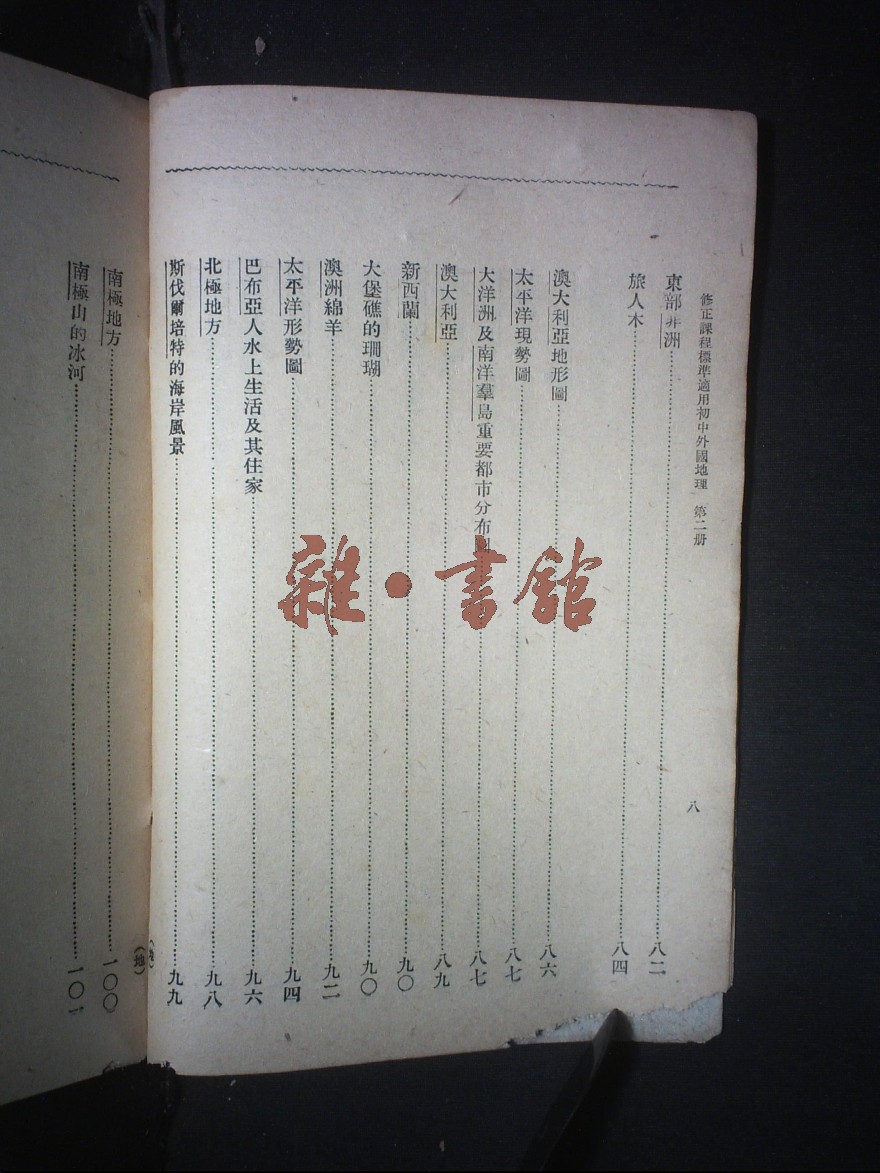 修正課程標準適用初中外國地理 第二册
八
東部非洲……八二
旅人木……八四
澳大利亞地形圖……八六
太平洋現勢圖……八七
大洋洲及南洋羣島重要都市分布圖……八七
澳大利亞……八九
新西蘭……九〇
大堡礁的珊瑚……九〇
澳洲綿羊……九二
太平洋形勢圖……九四
巴布亞人水上生活及其住家……九六
北極地方……九八
斯伐爾培特的海岸風景……九九
南極地方……一〇〇
南極山的冰河……一〇一
(地)
雜·書館